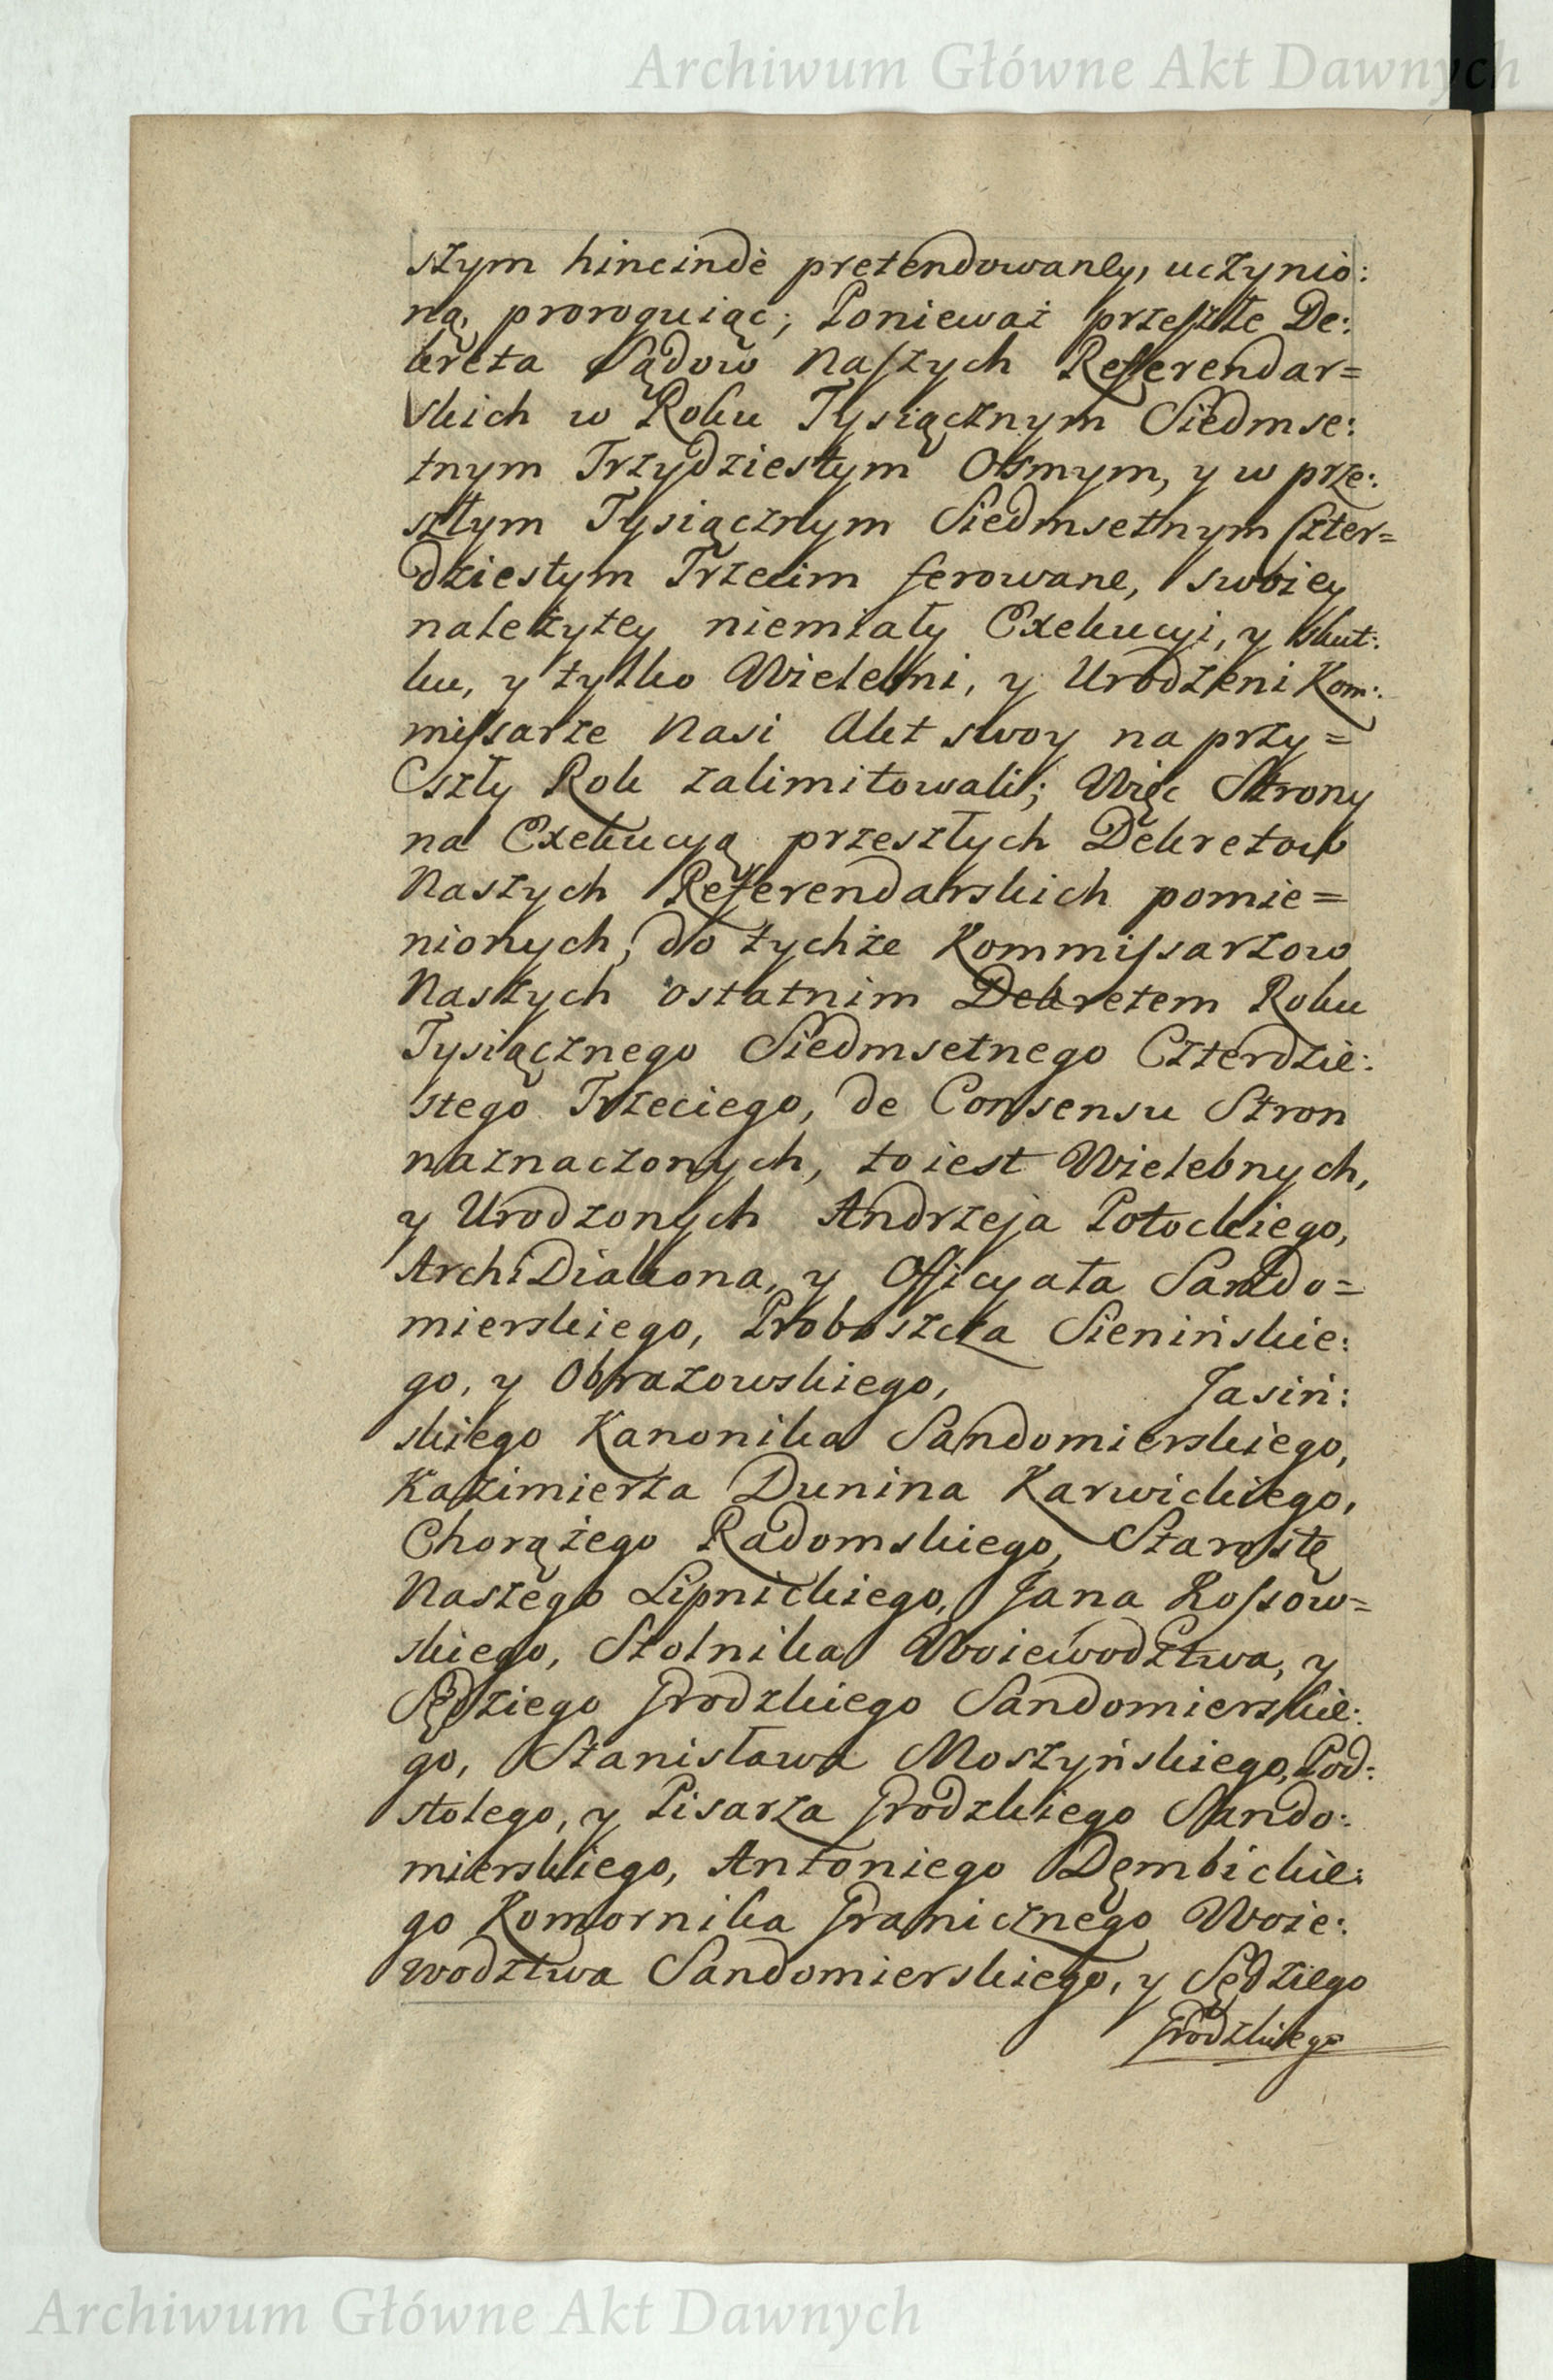 Archiwum Główne Akt Dawnych
szym hincindè pretendowaney, uczynio:
ną, proroguiąc; Ponieważ przeszłe De:
kreta Sądow Naszych Referendar=
skich w Roku Tysiącznym Siedmse:
tnym Trzydziestym Osmym, y w prze:
szłym Tysiącznym Siedmsetnym Czter=
dziestym Trzecim ferowane, swoiey
należytey niemiały Exekucyi, y skut:
ku, y tylko Wielebni, y Urodzeni Kom:
missarze Nasi Akt swoy na przy=
szły Rok zalimitowali; Więc Strony
na Exekucyą przeszłych Dekretow
Naszych Referendarskich pomie=
nionych, do tychże Kommissarzow
Naszych ostatnim Dekretem Roku
Tysiącznego Siedmsetnego Czterdzie:
stego Trzeciego, de Consensu Stron
naznaczonych, to iest Wielebnych,
y Urodzonych Andrzeja Potockiego,
ArchiDiakona, y Officyała Sando=
mierskiego, Proboszcza Sienińskie:
go, y Obrazowskiego, Jasiń:
skiego Kanonika Sandomierskiego,
Kazimierza Dunina Karwickiego,
Chorążego Radomskiego, Starostę
Naszego Lipnickiego, Jana Rossow=
skiego, Stolnika Woiewodztwa, y
Sędziego Grodzkiego Sandomierskie:
go, Stanisława Moszyńskiego, Pod:
stolego, y Pisarza Grodzkiego Sando:
mierskiego, Antoniego Dęmbickie:
go Komornika Granicznego Woie:
wodztwa Sandomierskiego, y Sędziego
Grodzkiego
Archiwum Główne Akt Dawnych